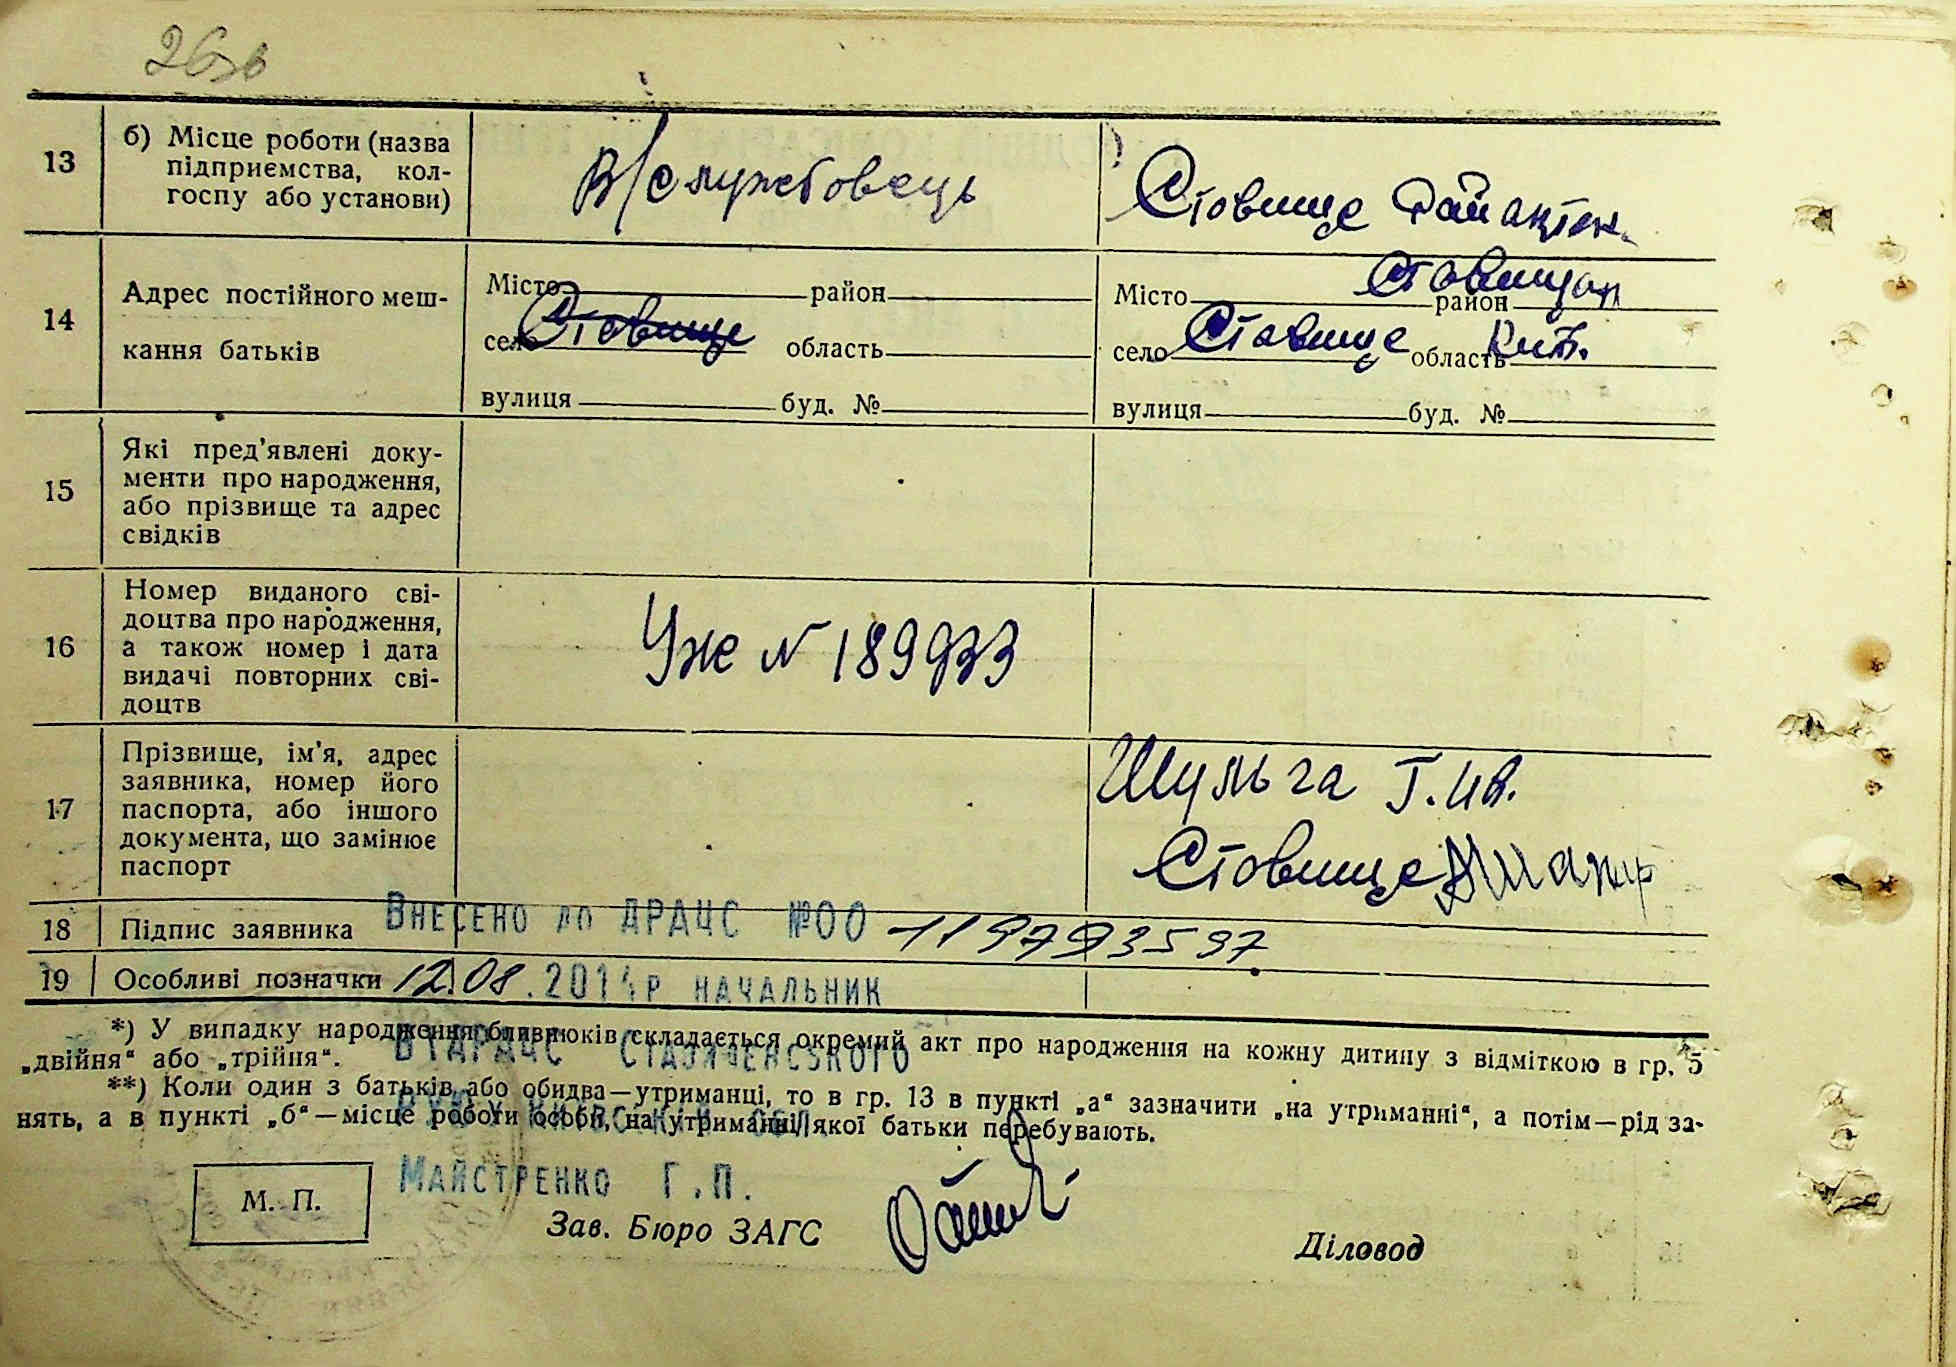 26зв
13
б) Місце роботи (назва
підприємства, кол-
госпу або установи)
В/службовець
Ставище
14
Адрес постійного меш-
кання батьків
Місто район
село Ставище область
вулиця буд. №
Місто район
село Ставище область Київ.
вулиця буд. №
15
Які пред'явлені доку-
менти про народження,
або прізвище та адрес
свідків
16
Номер виданого сві-
доцтва про народження,
а також номер і дата
видачі повторних сві-
доцтв
Уже № 189933
17
Прізвище, ім'я, адрес
заявника, номер його
паспорта, або іншого
документа, що замінює
паспорт
Шульга Г. Ив.
Ставище
18 Підпис заявника Внесено до ДРАЦС №00 119793597
19 Особливі позначки 12.08.2014р начальник
*) У випадку народження близнюків складається окремий акт про народження на кожну дитину з відміткою в гр. 5
„двійня“ або „трійня“.
ВДРАЦС Ставищенського
**) Коли один з батьків або обидва—утриманці, то в гр. 13 в пункті „а“ зазначити „на утриманні“, а потім—рід за-
нять, а в пункті „б“—місце роботи особи, на утриманні якої батьки перебувають.
Майстренко Г.П.
М. П.
Зав. Бюро ЗАГС
Діловод